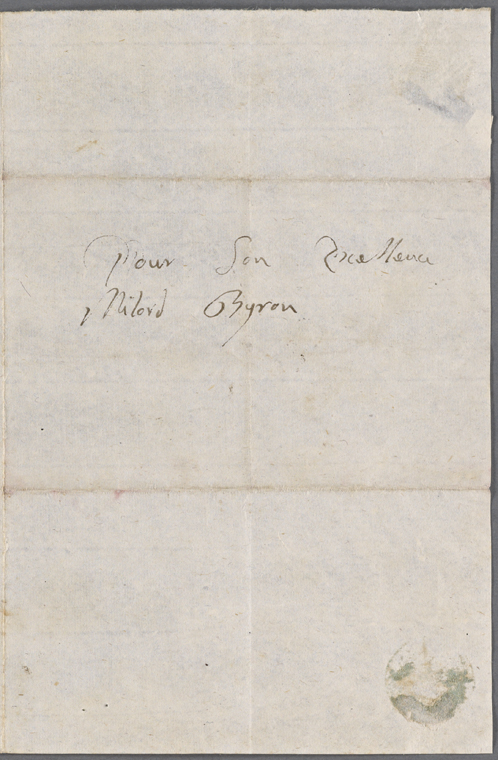 Pour Son Excellence
Milord Byron